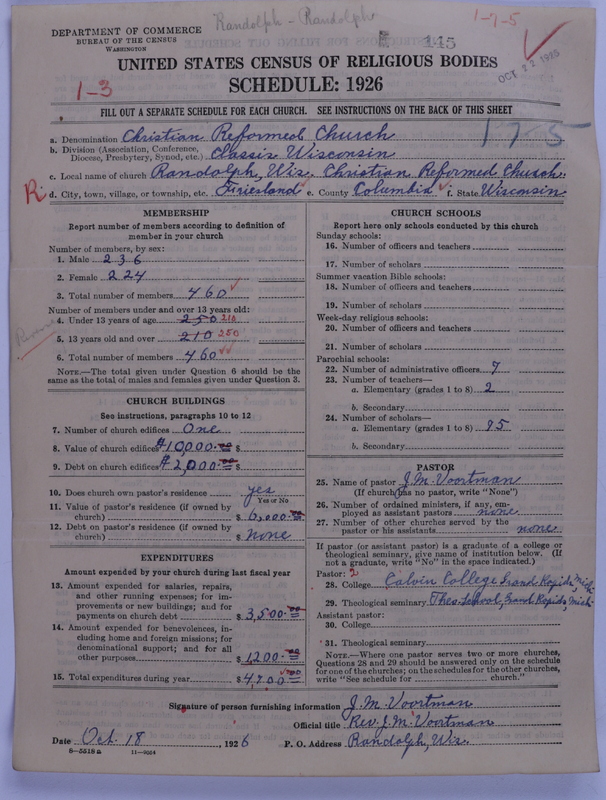 Randolph - Randolph
1-7-5
DEPARTMENT OF COMMERCE
BUREAU OF THE CENSUS
WASHINGTON
145
OCT 22 1925
UNITED STATES CENSUS OF RELIGIOUS BODIES
1-3
SCHEDULE: 1926
FILL OUT A SEPARATE SCHEDULE FOR EACH CHURCH. SEE INSTRUCTIONS ON THE BACK OF THIS SHEET
a. Denomination Christian Reformed Church
175
b. Division (Association, Conference, Diocese, Presbytery, Synod, etc.) Classis Wisconsin
c. Local name of church Randolph, Wis. Christian Reformed Church
R
d. City, town, village, or township, etc. Friesland e. County Columbia f. State Wisconsin
MEMBERSHIP
Report number of members according to definition of
member in your church
Number of members, by sex:
1. Male 236
2. Female 224
3. Total number of members 460
Number of members under and over 13 years old:
4. Under 13 years of age 250 210
5. 13 years old and over 210 250
6. Total number of members 460
NOTE.—The total given under Question 6 should be
same as the total of males and females given under Question 3.
CHURCH BUILDINGS
See instructions, paragraphs 10 to 12
7. Number of church edifices One
8. Value of church edifices $10,000.00 $
9. Debt on church edifices $2,000.00 $
10. Does church own pastor's residence yes
Yes or No
11. Value of pastor's residence (if owned by
church) $ 6,000.00
12. Debt on pastor's residence (if owned by
church) $ None
EXPENDITURES
Amount expended by your church during last fiscal year
13. Amount expended for salaries, repairs,
and other running expenses; for im-
provements or new buildings; and for
payments on church debt $ 3,500.00
14. Amount expended for benevolences, in-
cluding home and foreign missions; for
denominational support; and for all
other purposes $ 1200.00
15. Total expenditures during year $ 4,700.00
CHURCH SCHOOLS
Report here only schools conducted by this church
Sunday schools:
16. Number of officers and teachers
17. Number of scholars
Summer vacation Bible schools:
18. Number of officers and teachers
19. Number of scholars
Week-day religious schools:
20. Number of officers and teachers
21. Number of scholars
Parochial schools:
22. Number of administrative officers 7
23. Number of teachers—
a. Elementary (grades 1 to 8) 2
b. Secondary
24. Number of scholars—
a. Elementary (grades 1 to 8) 85
b. Secondary
PASTOR
25. Name of pastor J.M. Voortman
(If church has no pastor, write "None")
26. Number of ordained ministers, if any, em-
ployed as assistant pastors none
27. Number of other churches served by the
pastor or his assistants none
If pastor (or assistant pastor) is a graduate of a college or
theological seminary, give name of institution below. (If
not a graduate, write "No" in the space indicated.)
Pastor: 2
28. College Calvin College Grand Rapids Mich
29. Theological seminary Theo. School, Grand Rapids, Mich
Assistant pastor:
30. College
31. Theological seminary
NOTE.—Where one pastor serves two or more churches,
Questions 28 and 29 should be answered only on the schedule
for one of the churches; on the schedules for the other churches,
write "See schedule for church."
Signature of person furnishing information J.M. Voortman
Official title Rev. J.M. Voortman
Date Oct. 18, 1926 P. O. Address Randolph, Wis.
8-5518a 11-9054